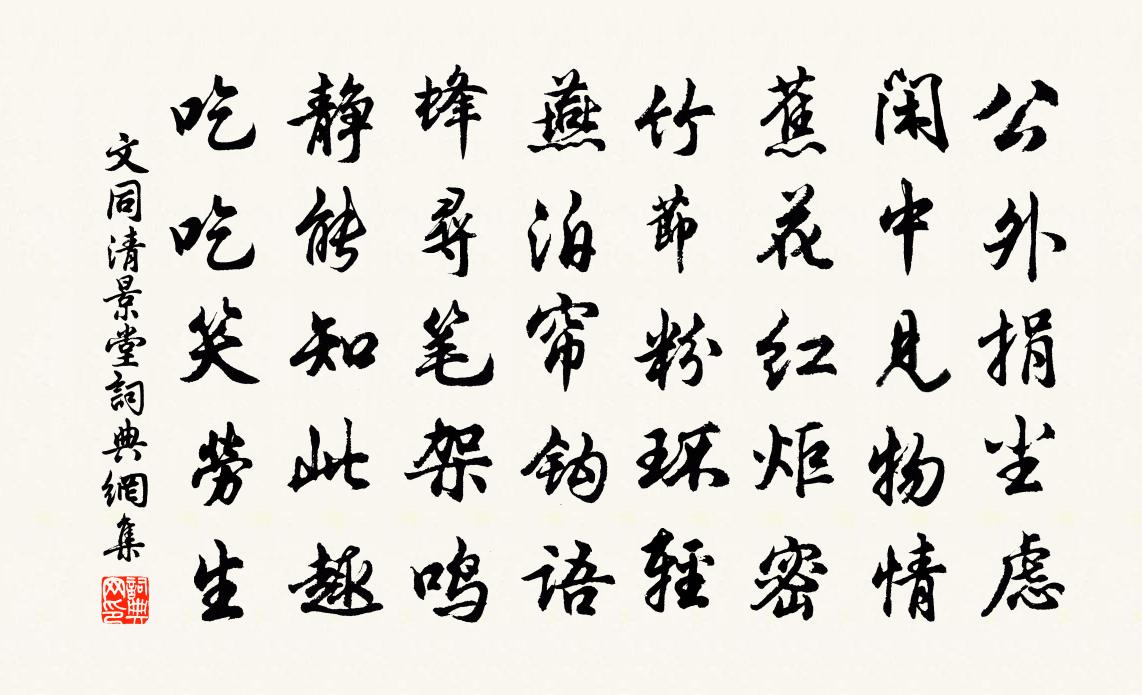 公外捐尘虑
闲中见物情
蕉花红炬密
竹节粉环轻
燕泊帘钩语
蜂寻笔架鸣
静能知此趣
吃吃笑劳生
文同清景堂詞典網集
詞典网印